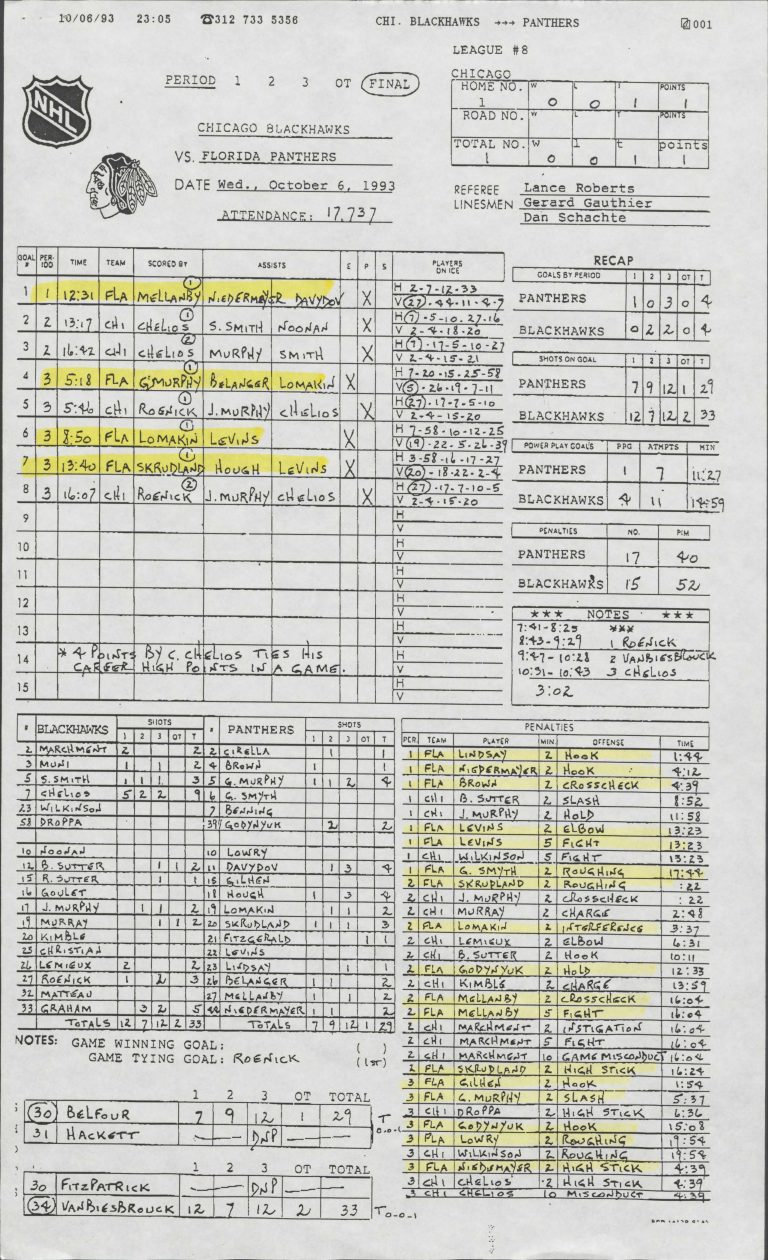 10/06/93 23:05 ☎312 733 5356 CHI. BLACKHAWKS →→→ PANTHERS 001
LEAGUE #8
PERIOD 1 2 3 OT FINAL
NHL
CHICAGO BLACKHAWKS
VS. FLORIDA PANTHERS
DATE Wed., October 6, 1993
ATTENDANCE: 17,737
CHICAGO
HOME NO. W L T POINTS
1 0 0 1 1
ROAD NO. W L T POINTS
TOTAL NO. W l t points
1 0 0 1 1
REFEREE Lance Roberts
LINESMEN Gerard Gauthier
Dan Schachte
GOAL # PERIOD TIME TEAM SCORED BY ASSISTS E P S PLAYERS ON ICE
1 1 12:31 FLA MELLANBY (1) NIEDERMAYER DAVYDOV X H 2-7-12-33
V (27)-44-11-4-7
2 2 13:17 CHI CHELIOS (1) S. SMITH NOONAN X H (7)-5-10-27-16
V 2-4-18-20
3 2 16:42 CHI CHELIOS (2) MURPHY SMITH X H (7)-17-5-10-27
V 2-4-15-21
4 3 5:18 FLA G.MURPHY (1) BELANGER LOMAKIN X H 7-20-15-25-58
V (5)-26-19-7-11
5 3 5:46 CHI ROENICK (1) J. MURPHY CHELIOS X H (27)-17-7-5-10
V 2-4-15-20
6 3 8:50 FLA LOMAKIN (1) LEVINS X H 7-58-10-12-25
V (19)-22-5-26-39
7 3 13:40 FLA SKRUDLAND (1) HOUGH LEVINS X H 3-58-16-17-27
V (20)-18-22-2-4
8 3 16:07 CHI ROENICK (2) J. MURPHY CHELIOS X H (27)-17-7-10-5
V 2-4-15-20
9 H
V
10 H
V
11 H
V
12 H
V
13 H
V
14 * 4 POINTS BY C. CHELIOS TIES HIS H
CAREER HIGH POINTS IN A GAME. V
15 H
V
RECAP
GOALS BY PERIOD 1 2 3 OT T
PANTHERS 1 0 3 0 4
BLACKHAWKS 0 2 2 0 4
SHOTS ON GOAL 1 2 3 OT T
PANTHERS 7 9 12 1 29
BLACKHAWKS 12 7 12 2 33
POWER PLAY GOALS PPG ATMPTS MIN
PANTHERS 1 7 11:27
BLACKHAWKS 4 11 14:59
PENALTIES NO. PIM
PANTHERS 17 40
BLACKHAWKS 15 52
*** NOTES ***
7:41-8:25 ***
8:43-9:29 1 ROENICK
9:47-10:28 2 VANBIESBROUCK
10:31-10:43 3 CHELIOS
3:02
# BLACKHAWKS SHOTS 1 2 3 OT T
2 MARCHMENT 2 2
3 MUNI 1 1 2
5 S. SMITH 1 1 1 3
7 CHELIOS 5 2 2 9
23 WILKINSON
58 DROPPA
10 NOONAN
12 B. SUTTER 1 1 2
15 R. SUTTER 1 1
16 GOULET
17 J. MURPHY 1 1 2
19 MURRAY 1 1 2
20 KIMBLE
25 CHRISTIAN
26 LEMIEUX 2 2
27 ROENICK 1 2 3
32 MATTEAU
33 GRAHAM 3 2 5
TOTALS 12 7 12 2 33
# PANTHERS SHOTS 1 2 3 OT T
2 CIRELLA 1 1
4 BROWN 1 1
5 G. MURPHY 1 1 2 4
6 G. SMYTH
7 BENNING
39 GODYNYUK 2 2
10 LOWRY
11 DAVYDOV 1 3 4
15 GILHEN
18 HOUGH 1 3 4
19 LOMAKIN 1 1 2
20 SKRUDLAND 1 1 1 3
21 FITZGERALD 1 1
22 LEVINS
23 LINDSAY 1 1
26 BELANGER 1 1 2
27 MELLANBY 1 1 2
44 NIEDERMAYER 1 1 2
TOTALS 7 9 12 1 29
PENALTIES
PER. TEAM PLAYER MIN. OFFENSE TIME
1 FLA LINDSAY 2 HOOK 1:44
1 FLA NIEDERMAYER 2 HOOK 4:12
1 FLA BROWN 2 CROSSCHECK 4:39
1 CHI B. SUTTER 2 SLASH 8:52
1 CHI J. MURPHY 2 HOLD 11:58
1 FLA LEVINS 2 ELBOW 13:23
1 FLA LEVINS 5 FIGHT 13:23
1 CHI WILKINSON 5 FIGHT 13:23
1 FLA G. SMYTH 2 ROUGHING 17:44
2 FLA SKRUDLAND 2 ROUGHING :22
2 CHI J. MURPHY 2 CROSSCHECK :22
2 CHI MURRAY 2 CHARGE 2:48
2 FLA LOMAKIN 2 INTERFERENCE 3:37
2 CHI LEMIEUX 2 ELBOW 6:31
2 CHI B. SUTTER 2 HOOK 10:11
2 FLA GODYNYUK 2 HOLD 12:33
2 CHI KIMBLE 2 CHARGE 13:59
2 FLA MELLANBY 2 CROSSCHECK 16:04
2 FLA MELLANBY 5 FIGHT 16:04
2 CHI MARCHMENT 2 INSTIGATION 16:04
2 CHI MARCHMENT 5 FIGHT 16:04
2 CHI MARCHMENT 10 GAME MISCONDUCT 16:04
2 FLA SKRUDLAND 2 HIGH STICK 16:24
3 FLA GILHEN 2 HOOK 1:54
3 FLA G. MURPHY 2 SLASH 5:37
3 CHI DROPPA 2 HIGH STICK 6:36
3 FLA GODYNYUK 2 HOOK 15:08
3 FLA LOWRY 2 ROUGHING 19:54
3 CHI WILKINSON 2 ROUGHING 19:54
3 FLA NIEDERMAYER 2 HIGH STICK 4:39
3 CHI CHELIOS 2 HIGH STICK 4:39
3 CHI CHELIOS 10 MISCONDUCT 4:39
NOTES: GAME WINNING GOAL: ( )
GAME TYING GOAL: ROENICK (1st)
1 2 3 OT TOTAL
(30) BELFOUR 7 9 12 1 29 T 0-0-1
31 HACKETT DNP
1 2 3 OT TOTAL
30 FITZPATRICK DNP
(34) VANBIESBROUCK 12 7 12 2 33 T 0-0-1